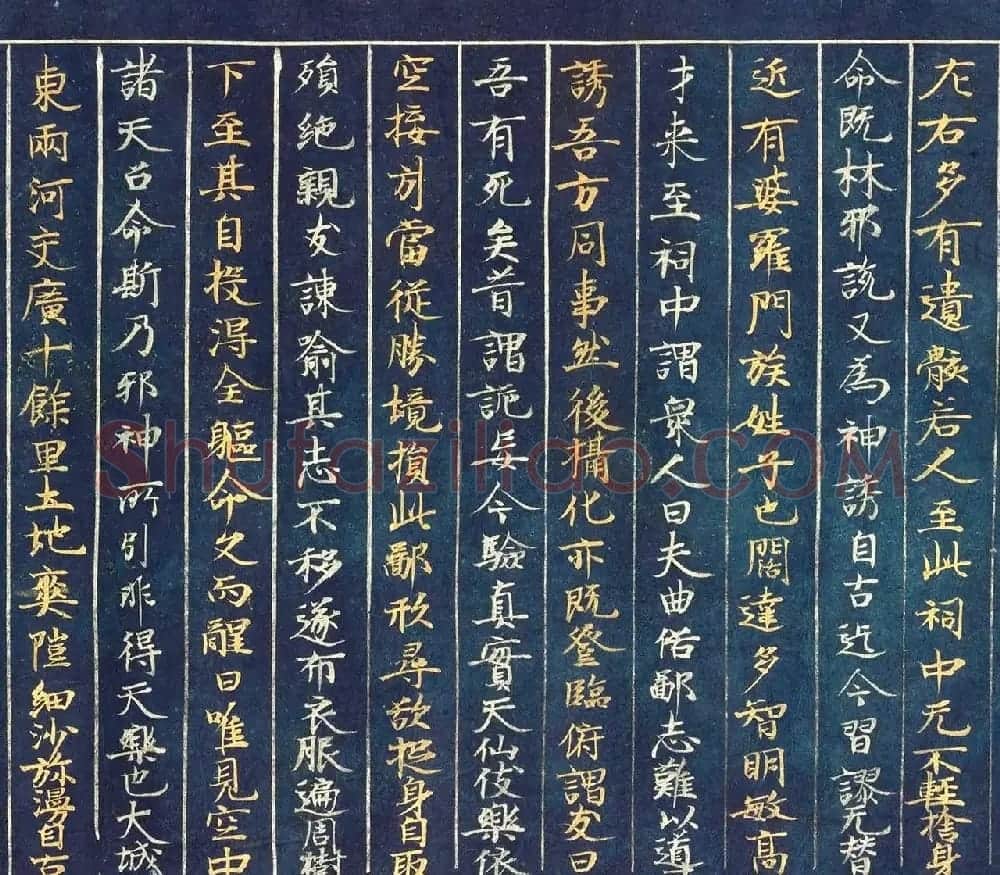 左右多有遺骸若人至此祠中无不輕捨身
命既林邪該又為神誘自古迄今習謬无替
近有婆羅門族姓子也闊達多智明敏高
才来至祠中謂衆人曰夫曲俗鄙志難以導
誘吾方同事然後攝化亦既登臨俯謂友曰
吾有死矣昔謂詭妄今驗真實天仙伎樂依
空接引當從勝境損此鄙形尋欲投身自取
殞絶親友諫喻其志不移遂布衣服遍周樹
下至其自投得全軀命久而醒曰唯見空中
諸天召命斯乃邪神所引非得天樂也大城
東兩河交廣十餘里土地爽塏細沙弥漫自古
Shufaziliao.COM